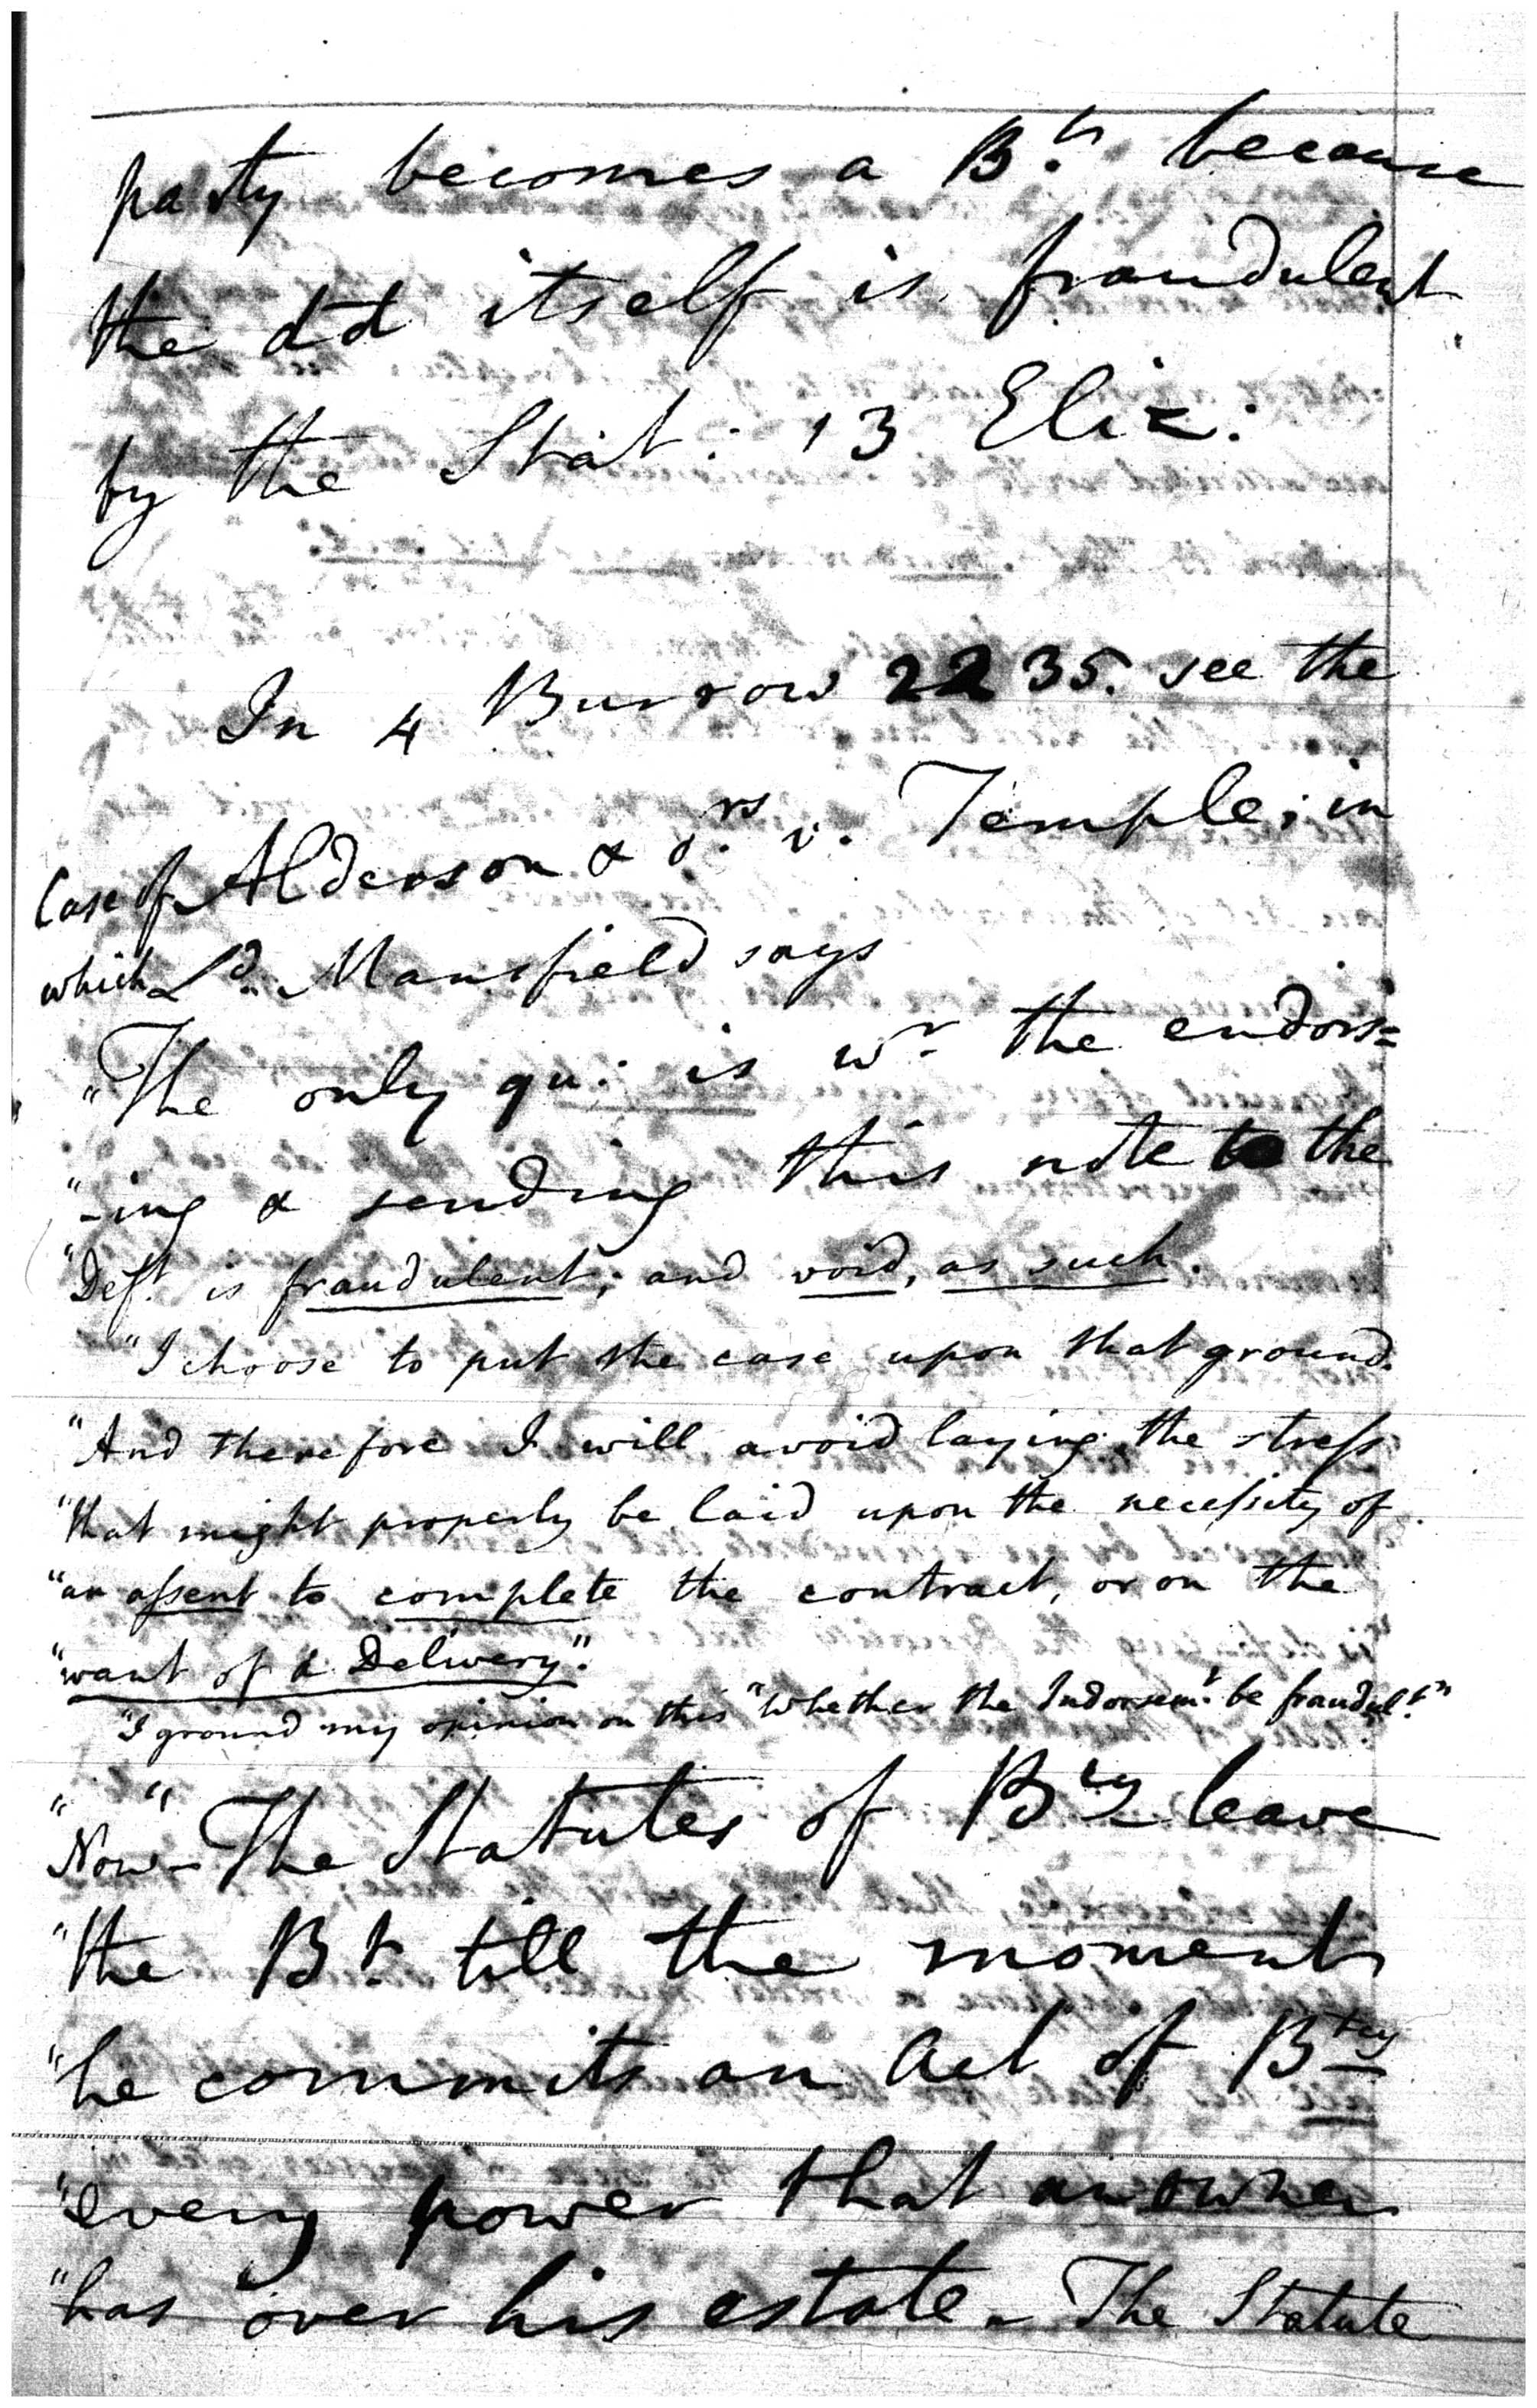 party becomes a B.t because
the ded itself is fraudulent
by the Stat: 13 Eliz:
In 4 Burrow 2235. see the
Case of Alderson & o.rs v. Temple; in
which Ld. Mansfield says
"The only qu: is wr. the endors=
"-ing & sending this note to the
"Deft. is fraudulent; and void, as such.
"I choose to put the case upon that ground.
"And therefore I will avoid laying the stress
"that might properly be laid upon the necessity of
"an assent to complete the contract, or on the
"want of a Delivery".
"I ground my opinion on this "Whether the Indorsem.t be fraudul.t"
"Now" - The Statutes of Bcy leave
"the Bt. till the moment
"he commits an Act of Btcy
"every power that an owner
"has over his estate. The Statute